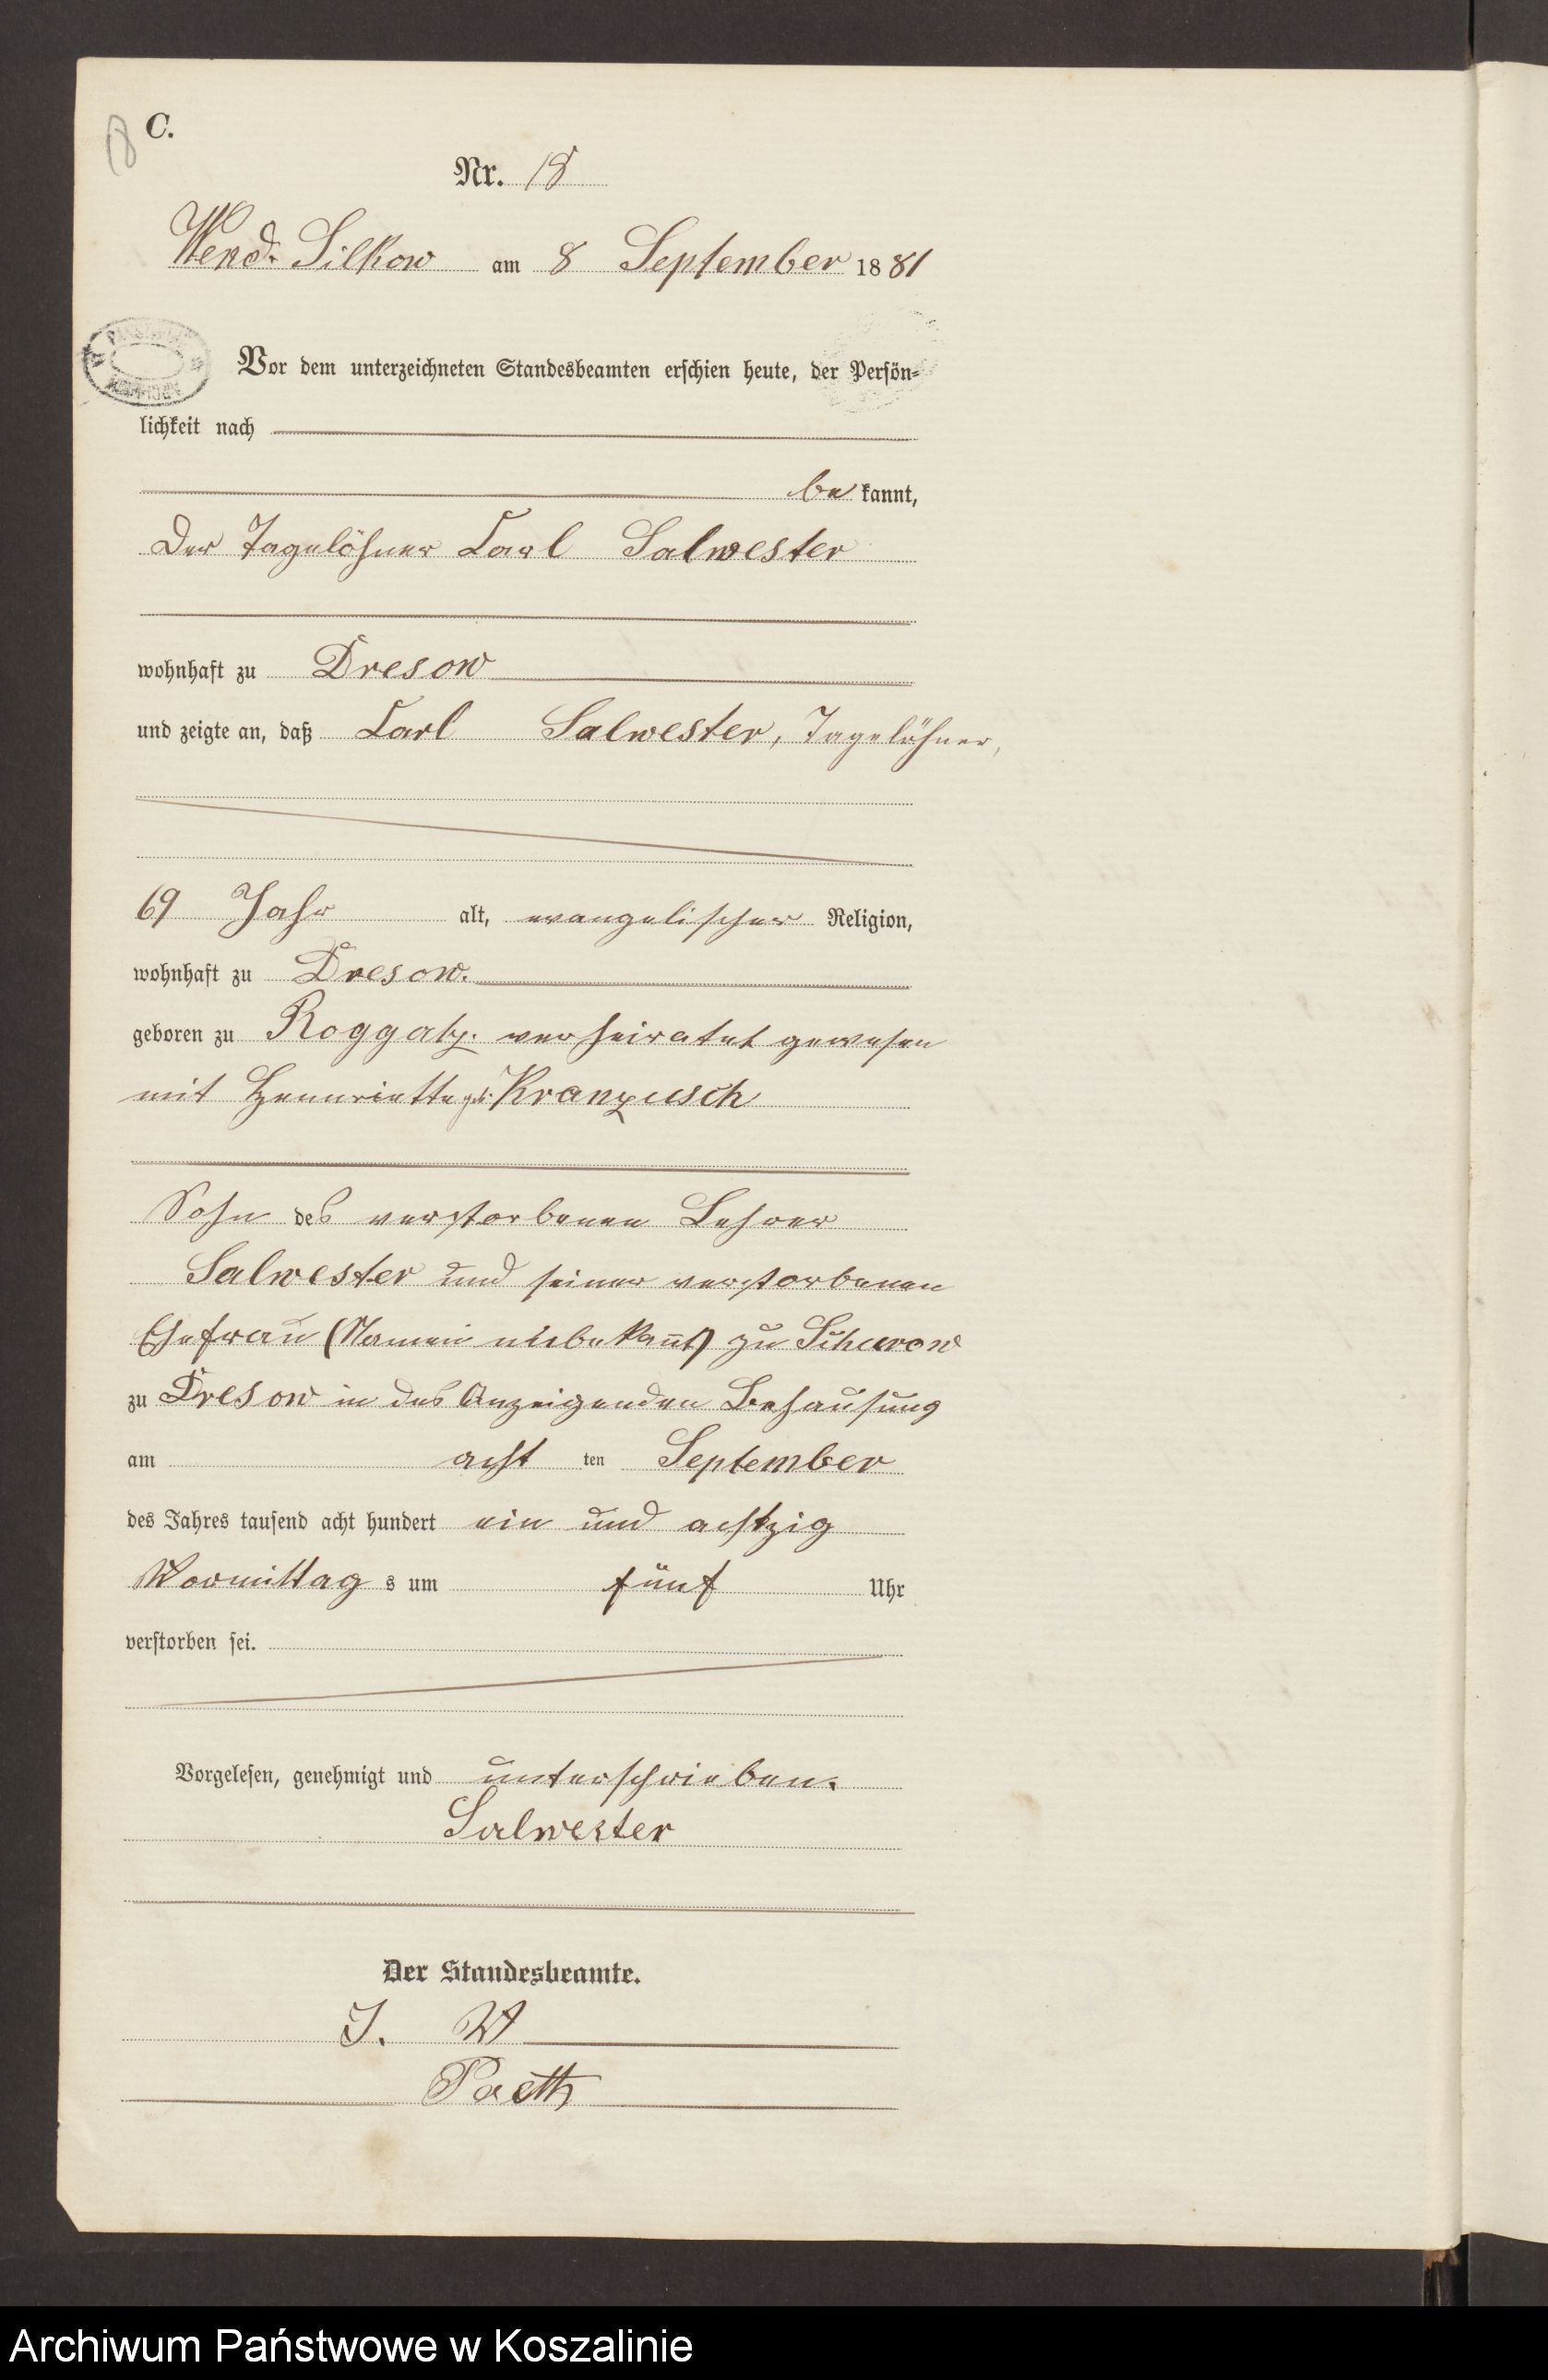 18
C.
Nr. 18
Wend. Silkow am 8 September 1881
Vor dem unterzeichneten Standesbeamten erschien heute, der Persön-
lichkeit nach
be kannt,
Der Tagelöhner Carl Salwester
wohnhaft zu Dresow
und zeigte an, daß Carl Salwester, Tagelöhner,
69 Jahr alt, evangelischer Religion,
wohnhaft zu Dresow.
geboren zu Roggatz. verheiratet gewesen
mit Hennriette geb: Kranzusch
Sohn des verstorbenen Lehrer
Salwester und seiner verstorbenen
Ehefrau (Namen unbekannt) zu Schurow
zu Dresow in des Anzeigenden Behausung
am acht ten September
des Jahres tausend acht hundert ein und achtzig
Vormittag s um fünf Uhr
verstorben sei.
Vorgelesen, genehmigt und unterschrieben.
Salwester
Der Standesbeamte.
J. V
Paeth
Archiwum Państwowe w Koszalinie